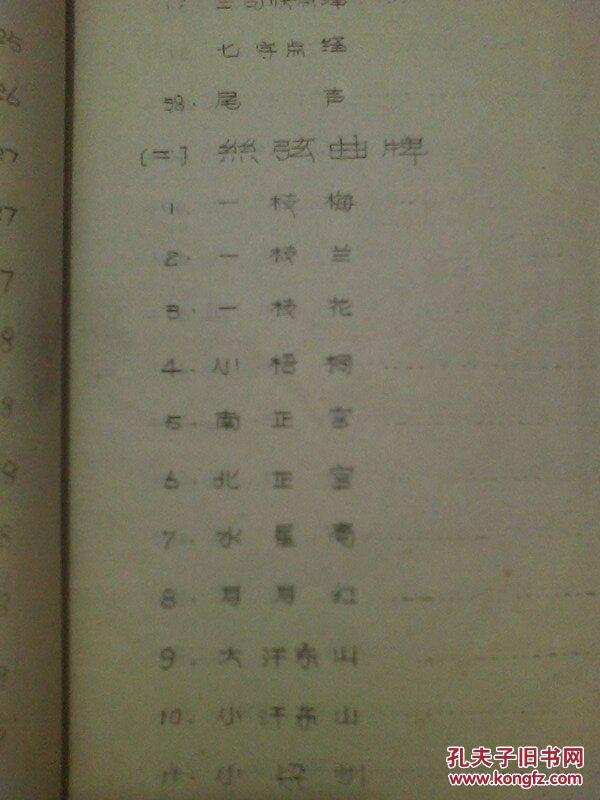 七字点绛
58. 尾声
(二) 絲弦曲牌
1. 一枝梅
2. 一枝兰
3. 一枝花
4. 小梧桐
5. 南正宫
6. 北正宫
7. 水星高
8. 月月红
9. 大汗东山
10. 小汗东山
11. 小
25
26
27
27
7
8
8
8
孔夫子旧书网
www.kongfz.com